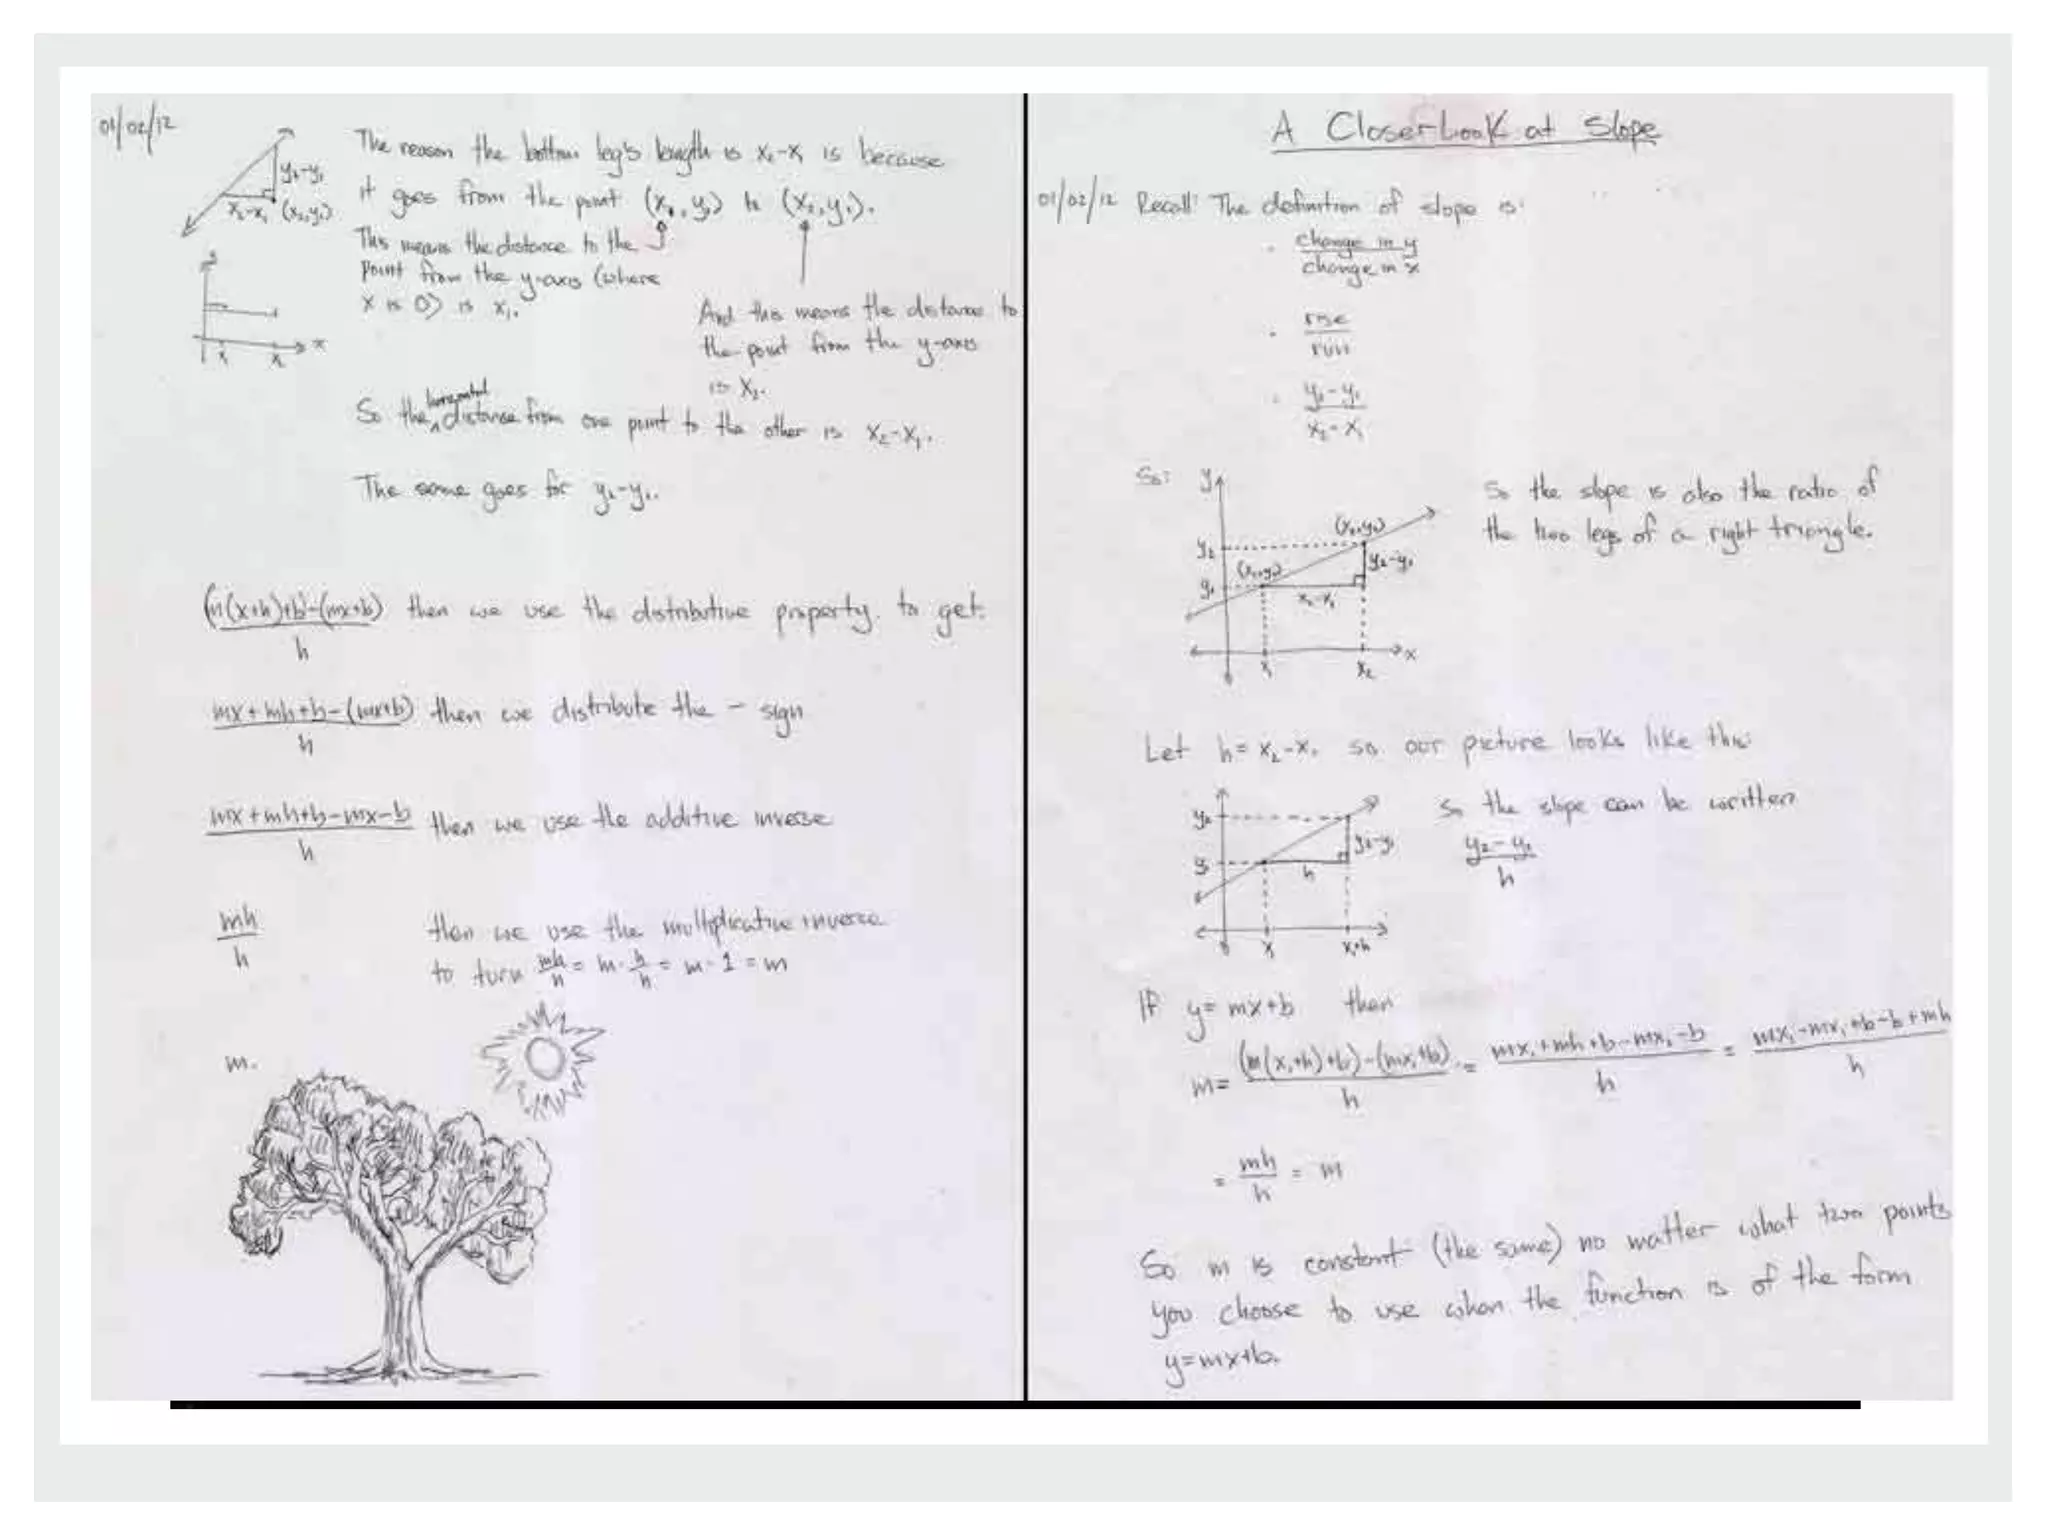 01/02/12
y₂-y₁
x₂-x₁ (x₂,y₁)
The reason the bottom leg's length is x₂-x₁ is because
it goes from the point (x₁, y₁) to (x₂, y₁).
This means the distance to the
point from the y-axis (where
x is 0) is x₁.
And this means the distance to
the point from the y-axis
is x₂.
x
x₁ x₂
So the horizontal distance from one point to the other is x₂-x₁.
The same goes for y₂-y₁.
(m(x+h)+b)-(mx+b) then we use the distributive property. to get:
h
mx+mh+b-(mx+b) then we distribute the - sign
h
mx+mh+b-mx-b then we use the additive inverse
h
mh then we use the multiplicative inverse
h to turn mh/h = m·h/h = m·1 = m
m.
A Closer Look at Slope
01/02/12 Recall: The definition of slope is:
· change in y
change in x
· rise
run
· y₂-y₁
x₂-x₁
So:
y
(x₂,y₂)
y₂
(x₁,y₁) y₂-y₁
y₁
x₂-x₁
x
x₁ x₂
So the slope is also the ratio of
the two legs of a right triangle.
Let h = x₂-x₁ so our picture looks like this:
y₂
y₁ y₂-y₁
h
x₁ x₁+h
So the slope can be written
y₂-y₁
h
If y=mx+b then
m= (m(x₁+h)+b)-(mx₁+b)/h = mx₁+mh+b-mx₁-b/h = mx₁-mx₁+b-b+mh/h
= mh/h = m
So m is constant (the same) no matter what two points
you choose to use when the function is of the form
y=mx+b.